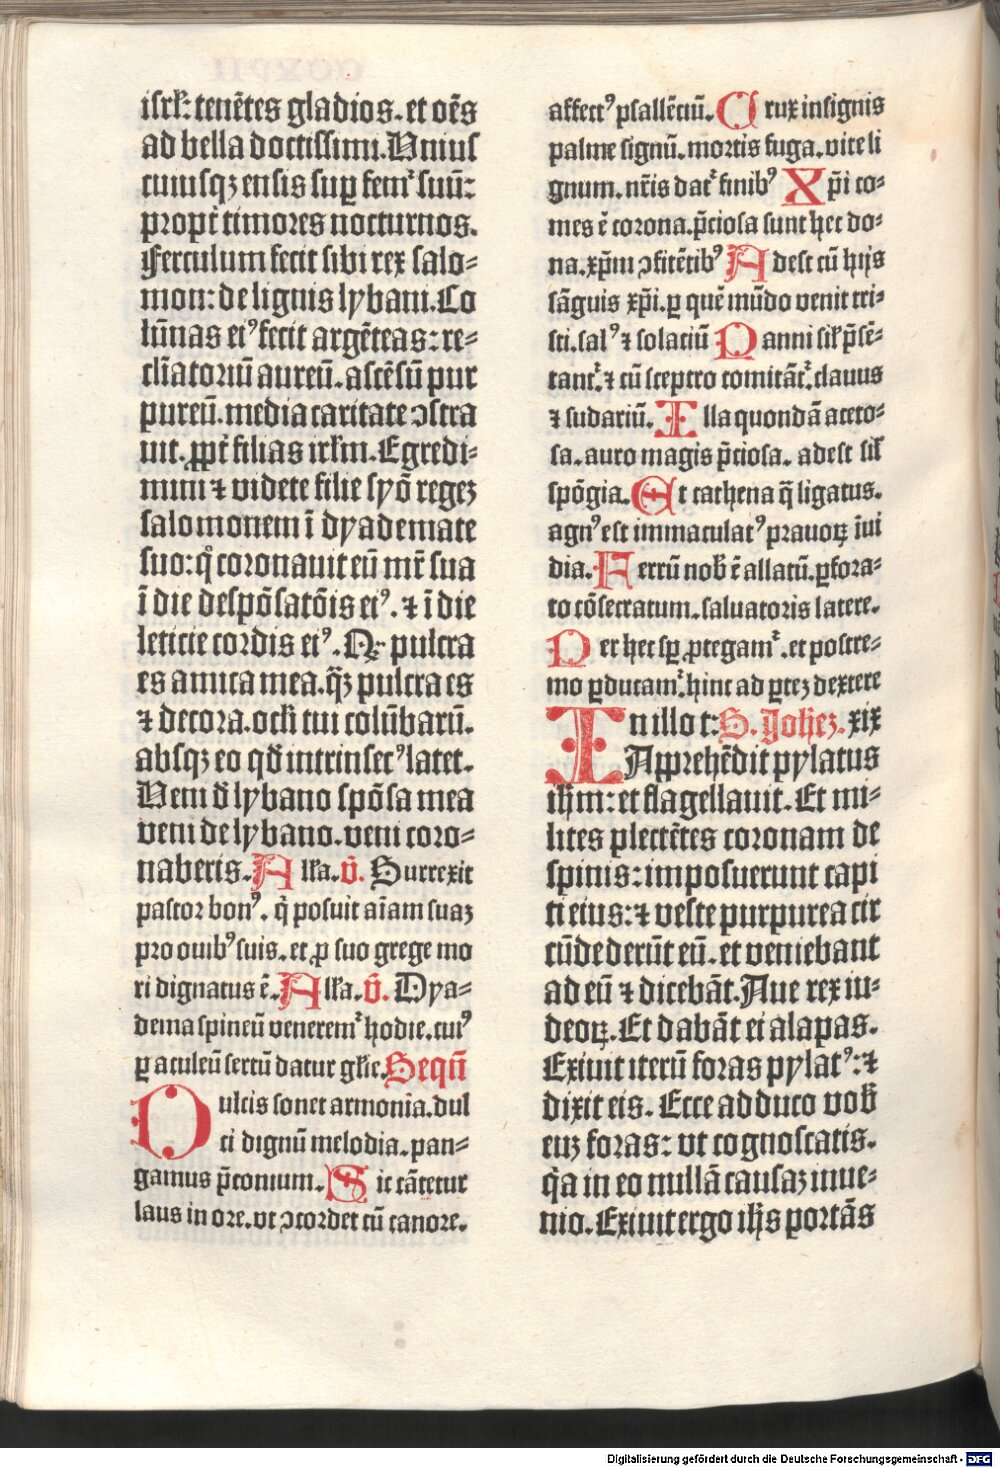 isrl̄: tenētes gladios. et oēs
ad bella doctissimi. Vnius
cuiusqꝫ ensis sup̱ femꝰ suū:
propt̄ timores nocturnos.
Ferculum fecit sibi rex salo⸗
mon: de lignis lybani. Co
lūnas eiꝰ fecit argēteas: re⸗
cliatoriū aureū. ascēsū pur
pureū. media caritate ꝯstra
uit. ꝓpt̄ filias irlm̄. Egredi⸗
mini ⁊ videte filie syō regeꝫ
salomonem ī dyademate
suo: q̊ coronauit eū mr̄ sua
ī die despōsatōis eiꝰ. ⁊ ī die
leticie cordis eiꝰ. Qꝫ pulcra
es amica mea. q̄ꝫ pulcra es
⁊ decora. ocl̄i tui colūbarū.
absqꝫ eo qd̄ intrinsecꝰ latet.
Veni d̄ lybano spōsa mea
veni de lybano. veni coro⸗
naberis. All̄a. v̄. Surrexit
pastor bonꝰ. q̄ posuit aīam suaꝫ
pro ouibꝰ suis. et ꝓ suo grege mo
ri dignatus ē. All̄a. v̄. Dya⸗
dema spineū veneremꝰ hodie. cuiꝰ
ꝑ aculeū sertū datur gl̄ie. Sequē
Dulcis sonet armonia. dul
ci dignū melodia. pan⸗
gamus p̄conium. Sic cātetur
laus in ore. vt ꝯcordet cū canore.
affectꝰ psallētiū. Crux insignis
palme signū. mortis fuga. vite li
gnum. nr̄is datꝰ finibꝰ Xp̄i co⸗
mes ē corona. p̄ciosa sunt hec do⸗
na. xp̄m ꝯfitētibꝰ Adest cū hijs
sāguis xp̄i. ꝑ quē mūdo venit tri⸗
sti. salꝰ ⁊ solaciū Panni sil̄ p̄sē⸗
tantꝰ. ⁊ cū sceptro comitātꝰ. clauus
⁊ sudariū. Illa quondā aceto⸗
sa. auro magis p̄ciosa. adest sil̄
spōgia. Et cathena q̄ ligatus.
agnꝰ est immaculatꝰ prauoꝝ īui
dia. Ferrū nob̄ ē allatū. ꝑfora⸗
to cōsecratum. saluatoris latere.
Per hec sp̄ ꝓtegamꝰ. et postre⸗
mo ꝑducamꝰ. hinc ad ꝑteꝫ dextere
In illo t: S. Joheꝫ. xix
Apprehēdit pylatus
ihm̄: et flagellauit. Et mi⸗
lites plectētes coronam de
spinis: imposuerunt capi
ti eius: ⁊ veste purpurea cir
cūdederūt eū. et veniebant
ad eū ⁊ dicebāt. Aue rex iu⸗
deoꝝ. Et dabāt ei alapas.
Exiuit iterū foras pylatꝰ: ⁊
dixit eis. Ecce adduco vob̄
euꝫ foras: vt cognoscatis.
q̄a in eo nullā causaꝫ inue⸗
nio. Exiuit ergo ih̄s portās
Digitalisierung gefördert durch die Deutsche Forschungsgemeinschaft - DFG